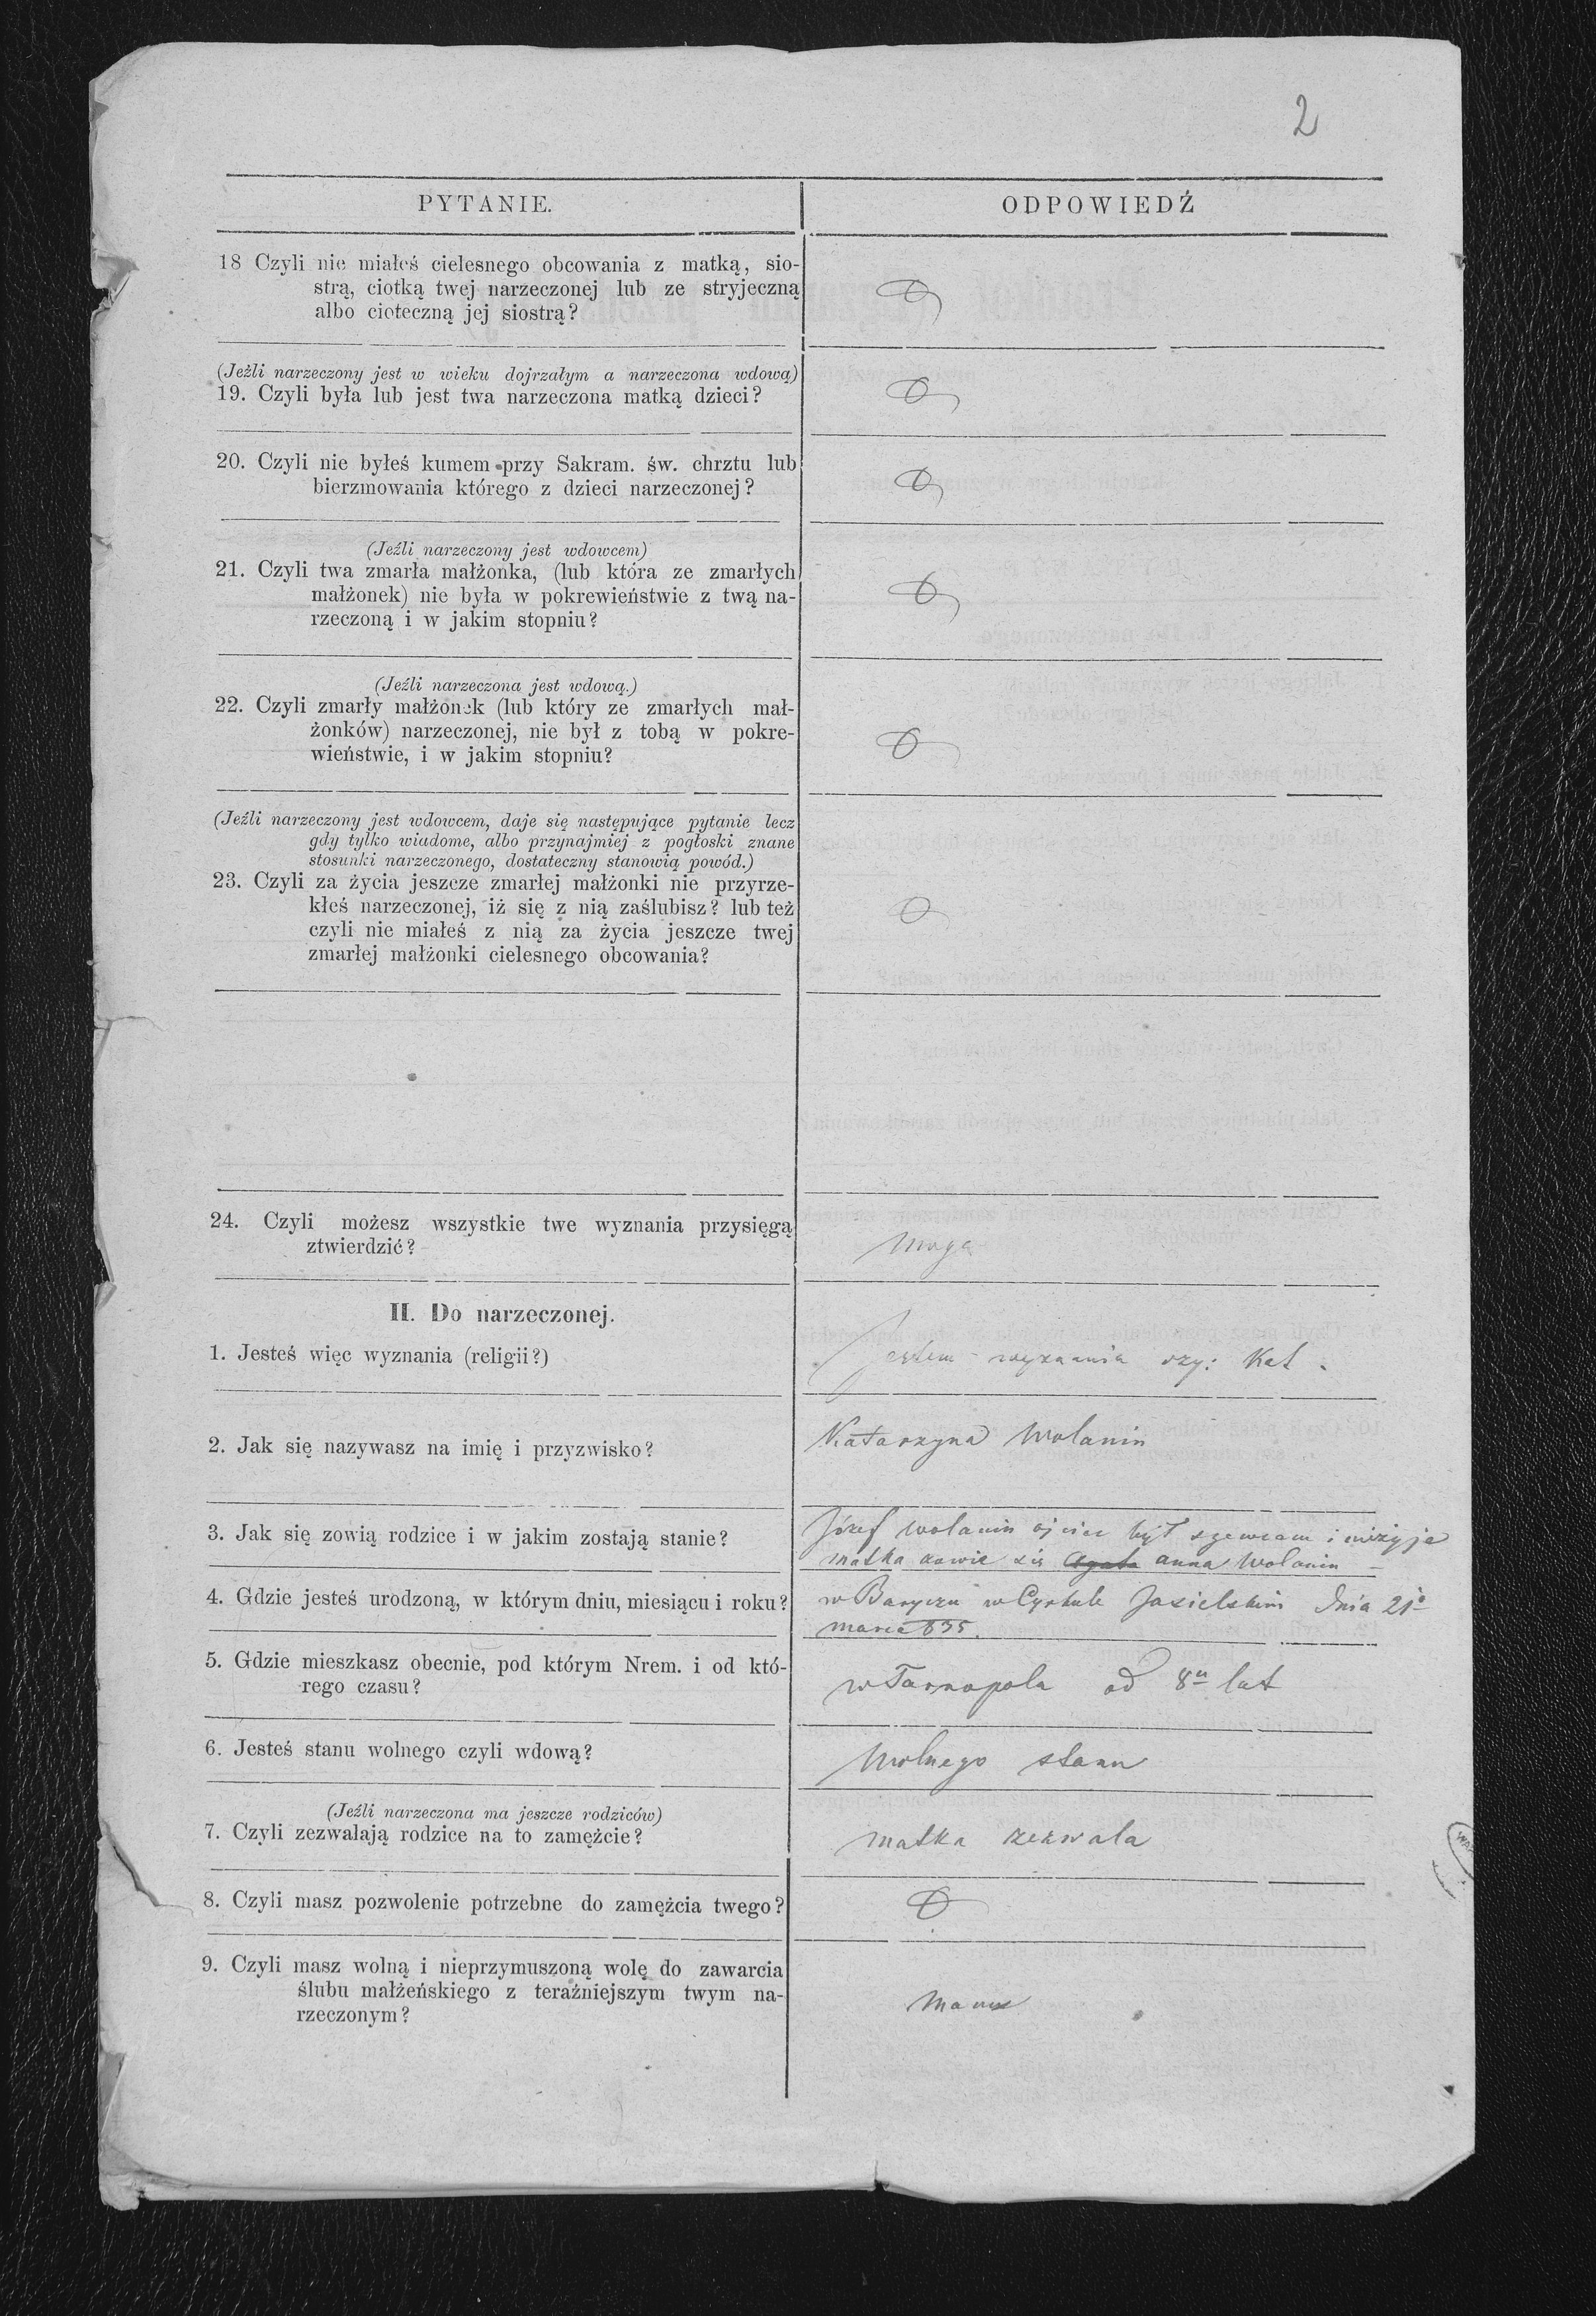 2
PYTANIE.
ODPOWIEDŹ
18 Czyli nie miałeś cielesnego obcowania z matką, sio-
strą, ciotką twej narzeczonej lub ze stryjeczną
albo cioteczną jej siostrą?
(Jeżli narzeczony jest w wieku dojrzałym a narzeczona wdową)
19. Czyli była lub jest twa narzeczona matką dzieci?
20. Czyli nie byłeś kumem przy Sakram. św. chrztu lub
bierzmowania którego z dzieci narzeczonej?
(Jeźli narzeczony jest wdowcem)
21. Czyli twa zmarła małżonka, (lub która ze zmarłych
małżonek) nie była w pokrewieństwie z twą na-
rzeczoną i w jakim stopniu?
(Jeźli narzeczona jest wdową.)
22. Czyli zmarły małżonek (lub który ze zmarłych mał-
żonków) narzeczonej, nie był z tobą w pokre-
wieństwie, i w jakim stopniu?
(Jeźli narzeczony jest wdowcem, daje się następujące pytanie lecz
gdy tylko wiadome, albo przynajmiej z pogłoski znane
stosunki narzeczonego, dostateczny stanowią powód.)
23. Czyli za życia jeszcze zmarłej małżonki nie przyrze-
kłeś narzeczonej, iż się z nią zaślubisz? lub też
czyli nie miałeś z nią za życia jeszcze twej
zmarłej małżonki cielesnego obcowania?
24. Czyli możesz wszystkie twe wyznania przysięgą
ztwierdzić?
Mogę
II. Do narzeczonej.
1. Jesteś więc wyznania (religii?)
Jestem wyznania rzy: Kat.
2. Jak się nazywasz na imię i przyzwisko?
Katarzyna Wolanin
3. Jak się zowią rodzice i w jakim zostają stanie?
Józef Wolanin ojciec był szewcem i nieżyje
matka zowie się Agata anna Wolanin
4. Gdzie jesteś urodzoną, w którym dniu, miesiącu i roku?
w Baryczu w Cyrkule Jasielskim dnia 21
marca 835.
5. Gdzie mieszkasz obecnie, pod którym Nrem. i od któ-
rego czasu?
w Tarnopolu od 8u lat
6. Jesteś stanu wolnego czyli wdową?
Wolnego stanu
(Jeźli narzeczona ma jeszcze rodziców)
7. Czyli zezwalają rodzice na to zamęźcie?
matka zezwala
8. Czyli masz pozwolenie potrzebne do zamężcia twego?
9. Czyli masz wolną i nieprzymuszoną wolę do zawarcia
ślubu małżeńskiego z teraźniejszym twym na-
rzeczonym?
Mam